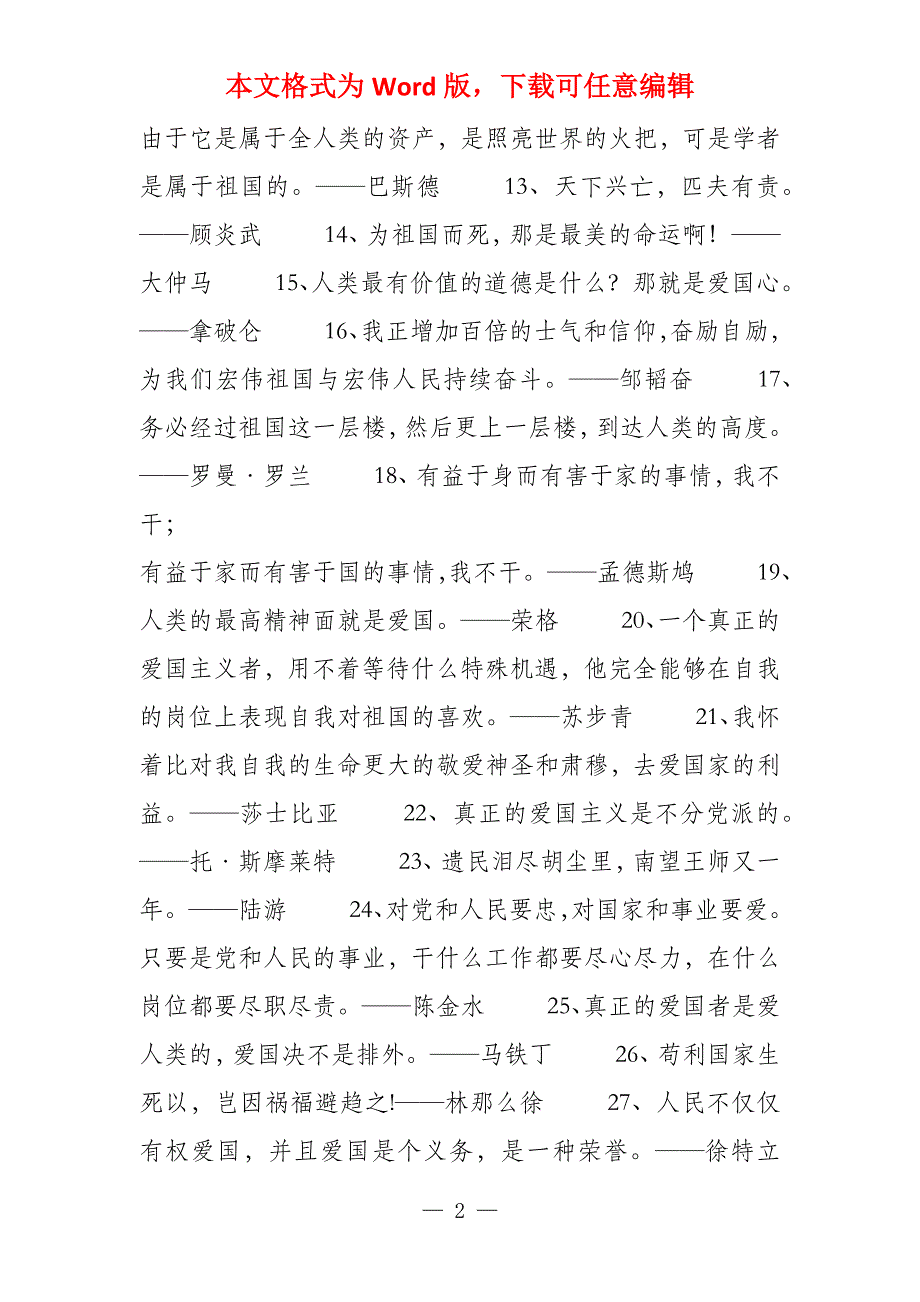 本文格式为 Word 版，下载可任意编辑
由于它是属于全人类的资产，是照亮世界的火把，可是学者
是属于祖国的。——巴斯德 13、天下兴亡，匹夫有责。
——顾炎武 14、为祖国而死，那是最美的命运啊！——
大仲马 15、人类最有价值的道德是什么？那就是爱国心。
——拿破仑 16、我正增加百倍的士气和信仰，奋励自励，
为我们宏伟祖国与宏伟人民持续奋斗。——邹韬奋 17、
务必经过祖国这一层楼，然后更上一层楼，到达人类的高度。
——罗曼·罗兰 18、有益于身而有害于家的事情，我不
干；
有益于家而有害于国的事情，我不干。——孟德斯鸠 19、
人类的最高精神面就是爱国。——荣格 20、一个真正的
爱国主义者，用不着等待什么特殊机遇，他完全能够在自我
的岗位上表现自我对祖国的喜欢。——苏步青 21、我怀
着比对我自我的生命更大的敬爱神圣和肃穆，去爱国家的利
益。——莎士比亚 22、真正的爱国主义是不分党派的。
——托·斯摩莱特 23、遗民泪尽胡尘里，南望王师又一
年。——陆游 24、对党和人民要忠，对国家和事业要爱。
只要是党和人民的事业，干什么工作都要尽心尽力，在什么
岗位都要尽职尽责。——陈金水 25、真正的爱国者是爱
人类的，爱国决不是排外。——马铁丁 26、苟利国家生
死以，岂因祸福避趋之!——林那么徐 27、人民不仅仅
有权爱国，并且爱国是个义务，是一种荣誉。——徐特立
— 2 —